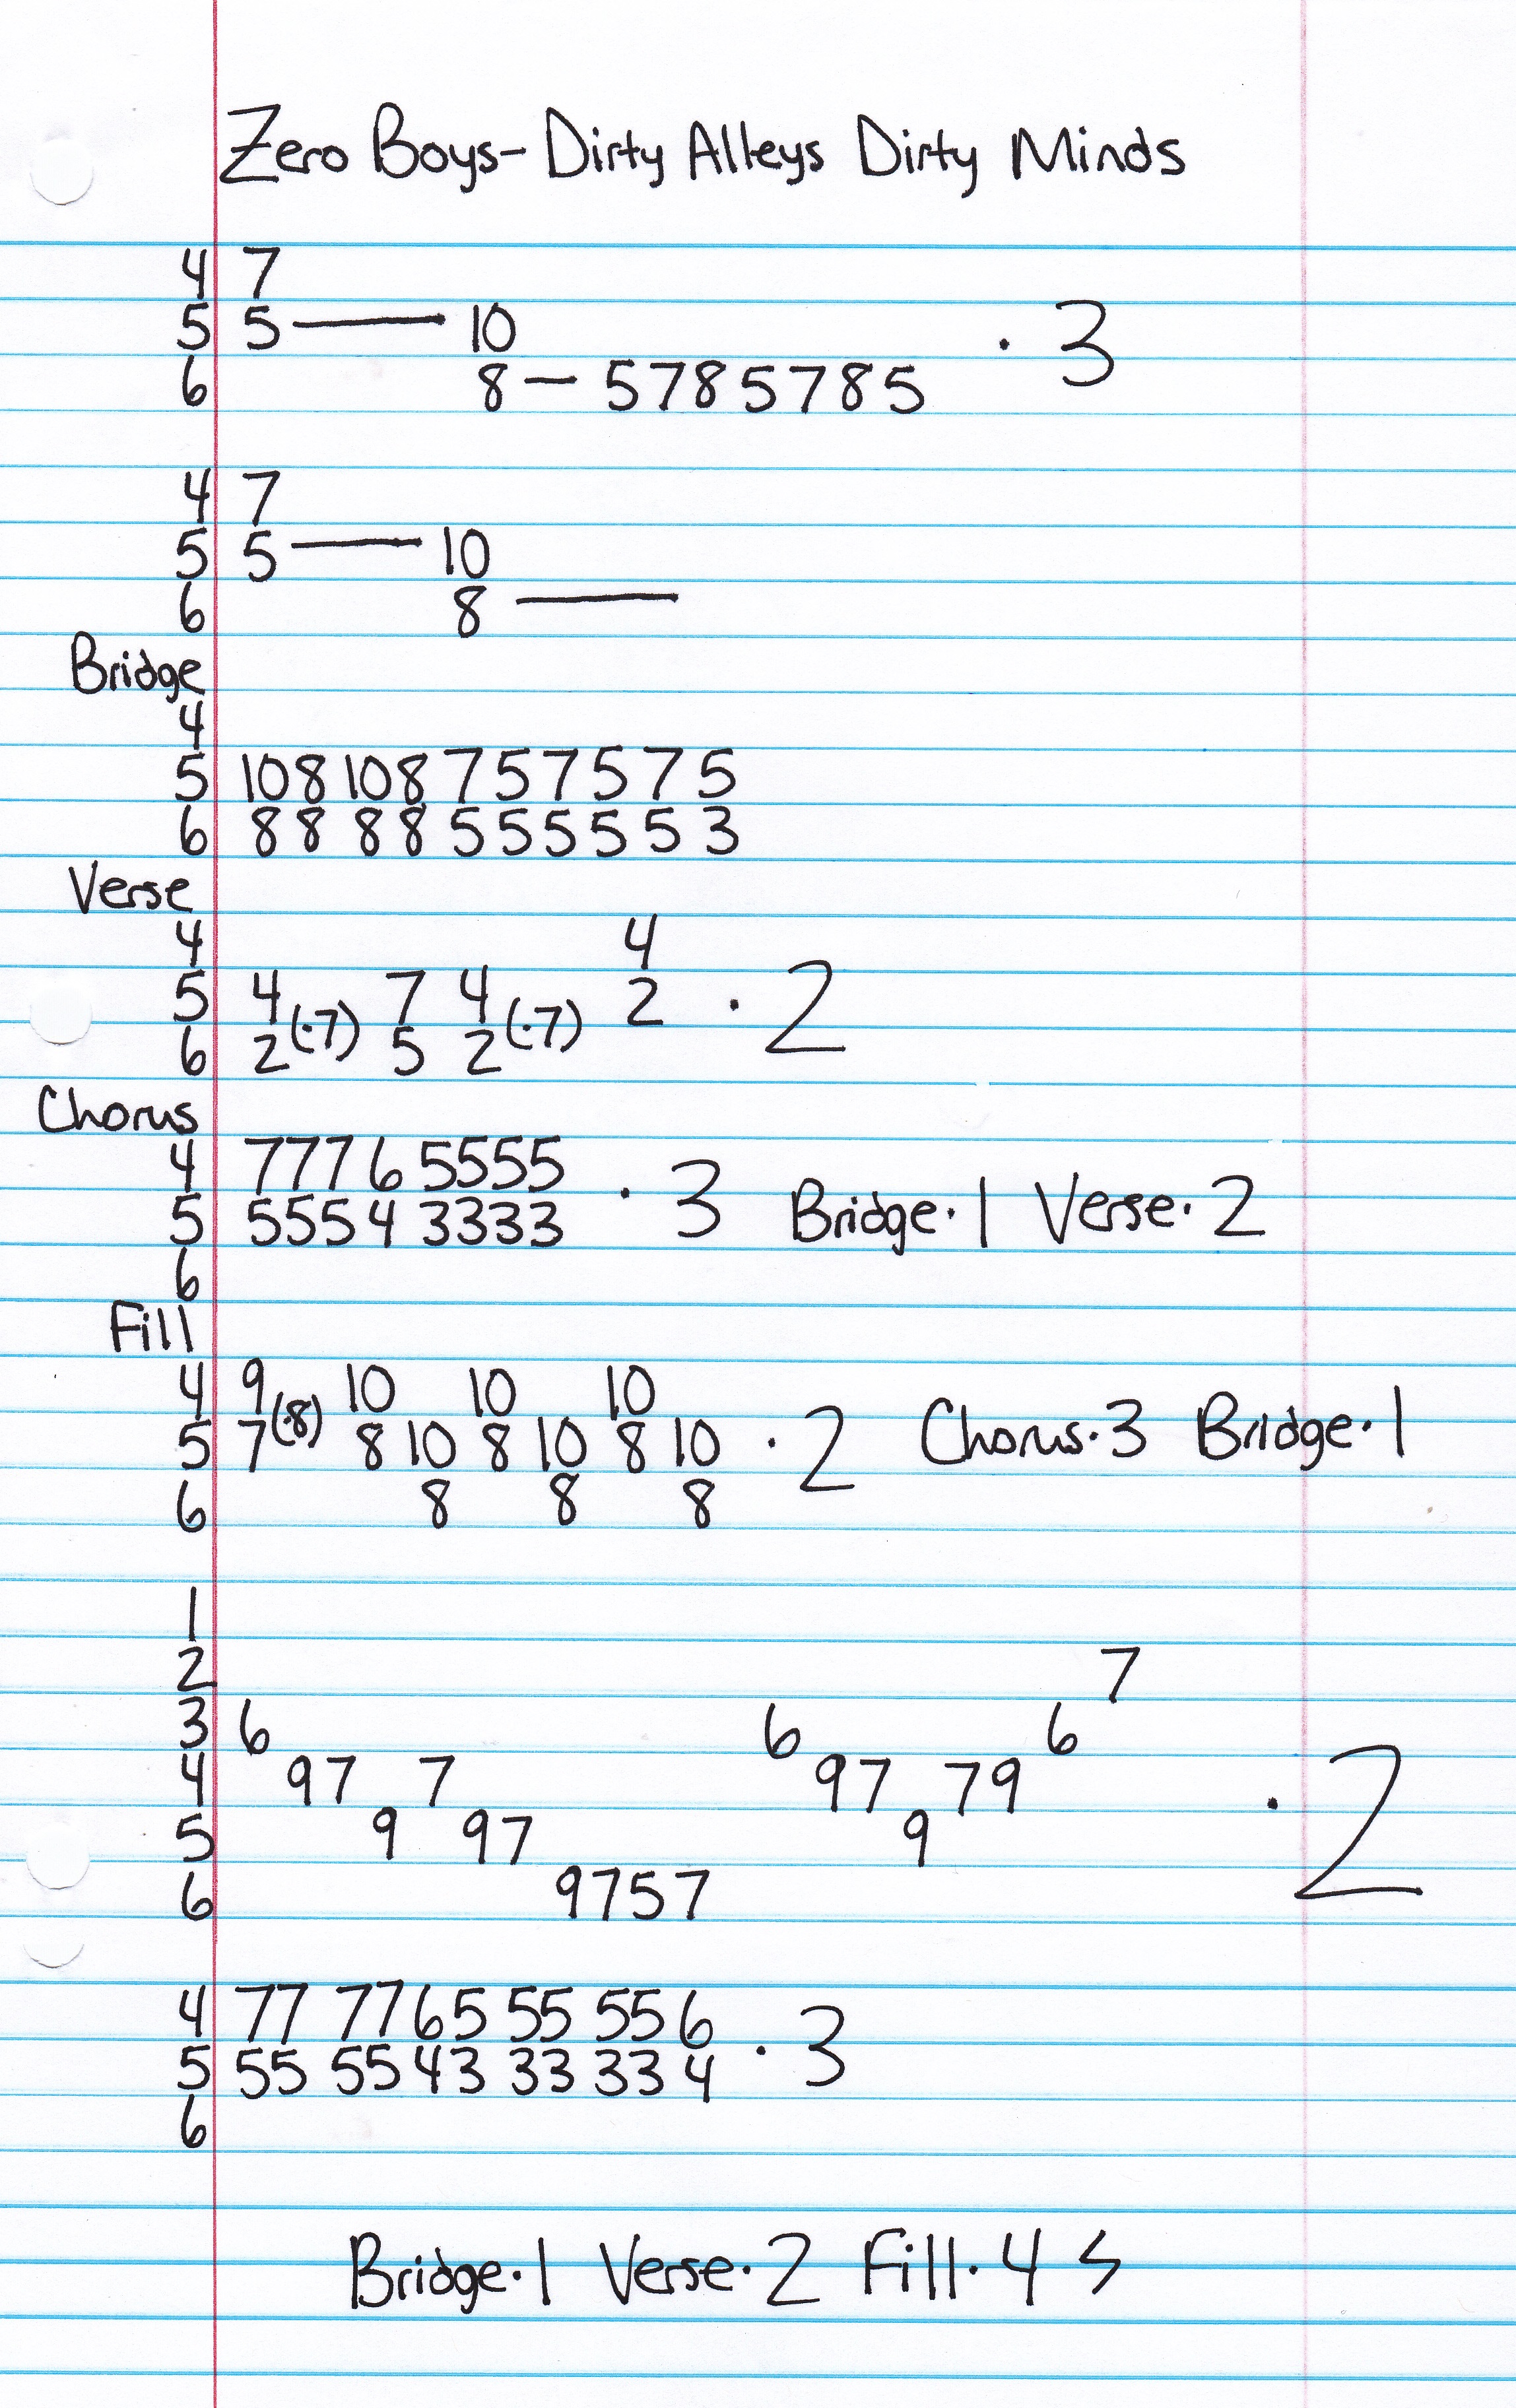 Zero Boys- Dirty Alleys Dirty Minds
4 7
5 5 — 10
6 8 — 5785785 · 3
4 7
5 5 — 10
6 8 —
Bridge
4
5 10 8 10 8 7 5 7 5 7 5
6 8 8 8 8 5 5 5 5 5 3
Verse
4 4
5 4 7 4 2 · 2
6 2 (·7) 5 2 (·7)
Chorus
4 7776 5555
5 5554 3333 · 3 Bridge·1 Verse·2
6
Fill
4 9 10 10 10
5 7 (·8) 8 10 8 10 8 10 · 2 Chorus·3 Bridge·1
6 8 8 8
1
2 7
3 6 6 6
4 97 7 97 79
5 9 97 9 · 2
6 9757
4 77 7765 55 556
5 55 5543 33 33 4 · 3
6
Bridge·1 Verse·2 Fill·4 ϟ